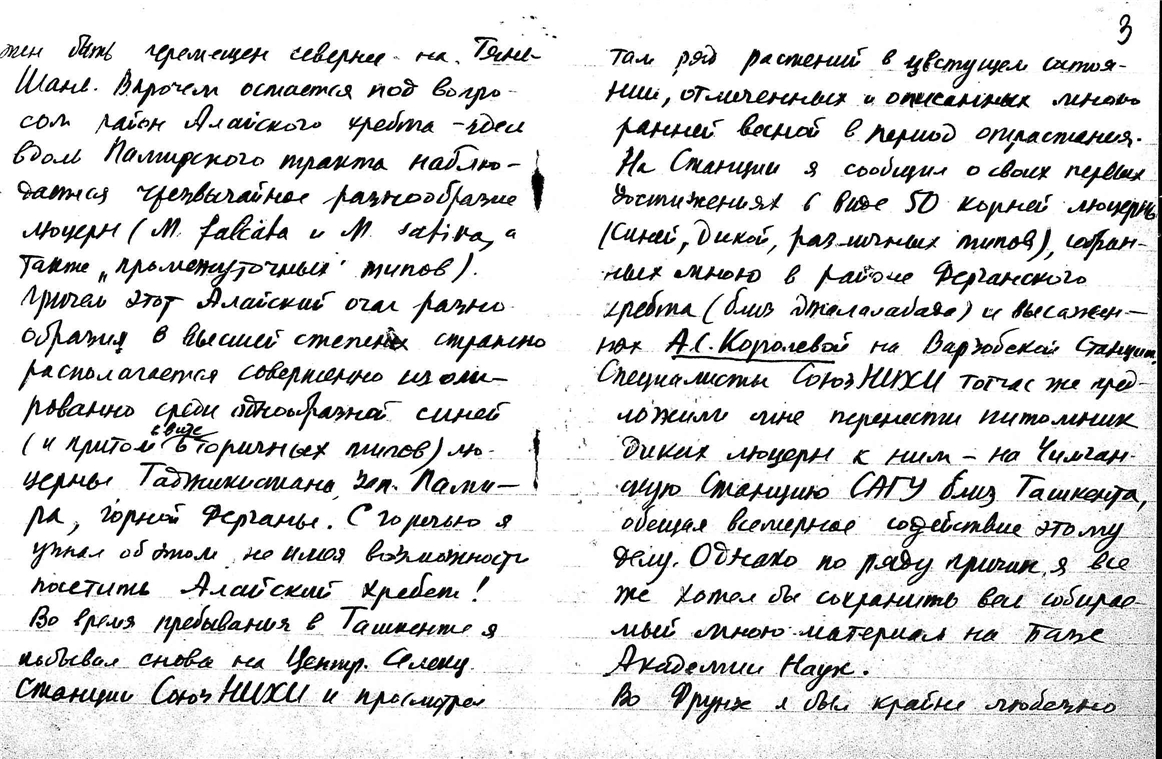 3
жен быть перемещен севернее на Тянь-
Шань. Впрочем остается под вопро-
сом район Алайского хребта – здесь
вдоль Памирского тракта наблю-
дается чрезвычайное разнообразие
люцерн (M. falcata и M. sativa, а
также „промежуточных" типов).
Причем этот Алайский очаг разно-
образия в высшей степени странно
располагается совершенно изоли-
рованно среди однообразной синей
(и притом в виде вторичных типов) лю-
церны Таджикистана, Зап. Пами-
ра, горной Ферганы. С горечью я
узнал об этом, не имея возможности
посетить Алайский хребет!
Во время пребывания в Ташкенте я
побывал снова на Центр. Селекц.
Станции СоюзНИХИ и просмотрел
там ряд растений в цветущем состоя-
нии, отмеченных и описанных мною
ранней весной в период отрастания.
На Станции я сообщил о своих первых
достижениях в виде 50 корней люцерны
(синей, дикой, различных типов), собран-
ных мною в районе Ферганского
хребта (близ Джалалабада) и высажен-
ных А.С. Королевой на Варзобской Станции.
Специалисты СоюзНИХИ тотчас же пред-
ложили мне перенести питомник
диких люцерн к ним – на Чимган-
скую Станцию САГУ близ Ташкента,
обещая всемерное содействие этому
делу. Однако по ряду причин я все
же хотел бы сохранить весь собирае-
мый мною материал на базе
Академии Наук.
Во Фрунзе я был крайне любезно